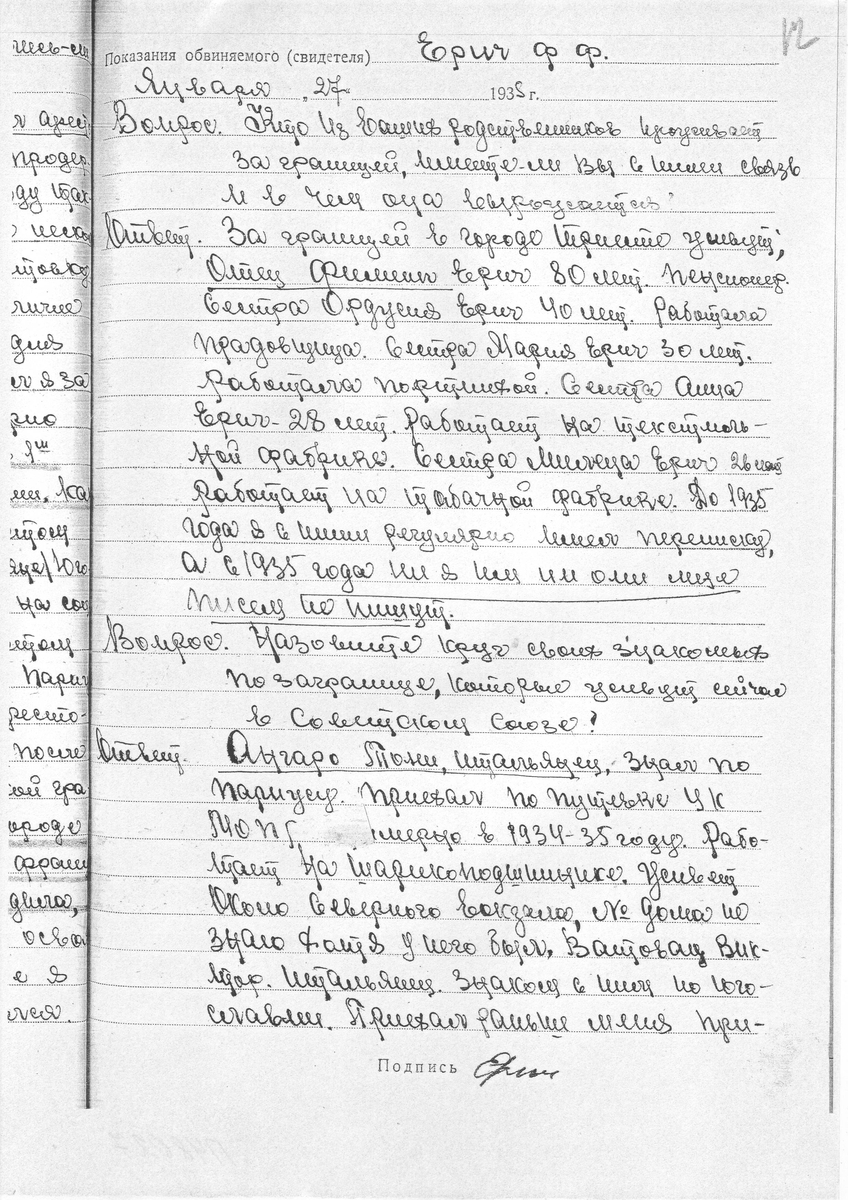 12
Показания обвиняемого (свидетеля) Ерич Ф Ф.
Января „27" 1938 г.
Вопрос. Кто из Ваших родственников проживает
за границей, имеете-ли вы с ними связь
и в чем она выражается?
Ответ. За границей в городе Триесте живут,
Отец Филипп Ерич 80 лет. пенсионер.
Сестра Ерич 40 лет. Работала
прадовщица. Сестра Мария Ерич 30 лет.
Работала портнихой. Сестра Анна
Ерич - 28 лет. Работает на текстиль-
ной фабрике. Сестра Милица Ерич 26 лет
Работает на табачной фабрике. До 1935
года я с ними регулярно имел переписку,
а с 1935 года ни я им ни они мне
писем не пишут.
Вопрос. Назовите круг своих знакомых
по загранице, которые живут сейчас
в Советском Союзе?
Ответ. Ангаро Тони, итальянец, знал по
Парижу. Приехал по путевке ЦК
МОПР в 1934-35 году. Рабо-
тает на Шарикоподшипнике. Живет
Около Северного вокзала, № дома не
знаю хотя у него был. Ватовац Вик-
тор. Итальянец. Знаком с ним по Юго-
славии. Приехал раньше меня при-
Подпись Ерич